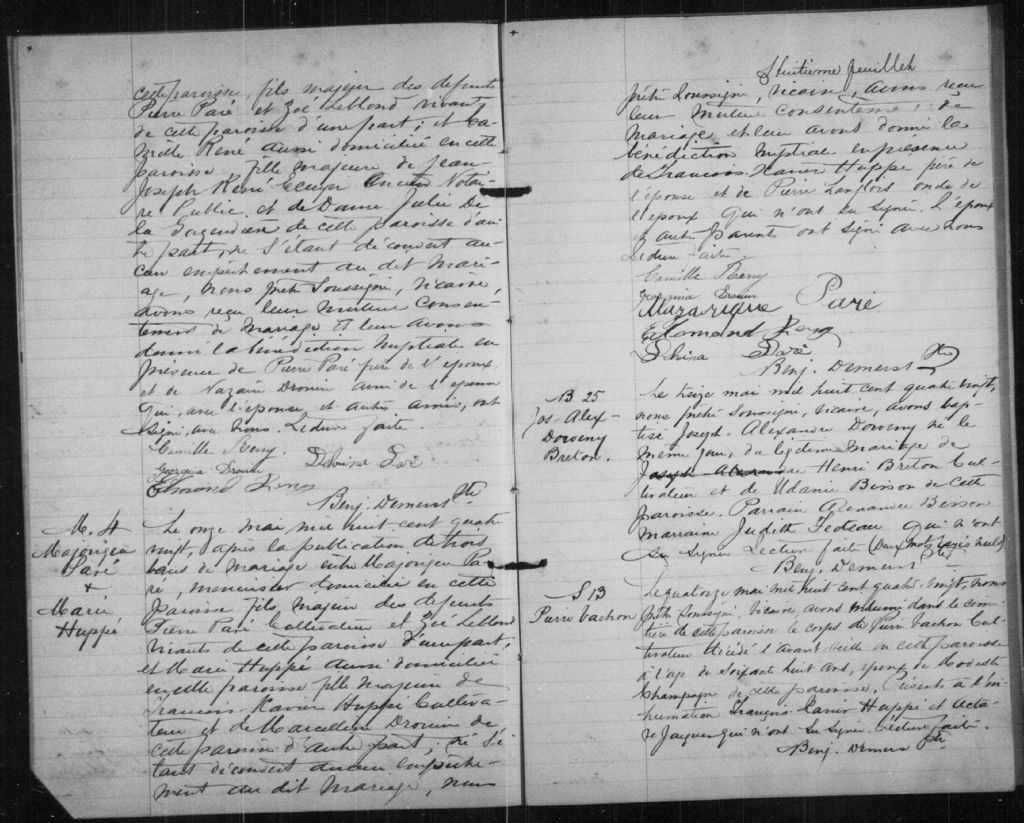 cette paroisse, fils majeur des defunts
Pierre Paré et Zoé Leblond vivants
de cette paroisse d'une part; et Ca-
mille René aussi domicilié en cette
paroisse fille majeure de Jean-
Joseph René Ecuyer Ancien Notai-
re Public et de Dame Julie De
la de cette paroisse d'au-
tre part, ne s'étant découvert au-
cun empêchement au dit mari-
age, nous prêtre soussigné, vicaire,
avons reçu leur mutuel consen-
tement de mariage et leur avons
donné la bénédiction nuptiale en
présence de Pierre Paré père de l'époux
et de Nazaire Drouin ami de l'épouse
qui, avec l'épouse et autres amis, ont
signé avec nous. Lecture faite.
Camille Remy.
Georgina Drouin Delvina Paré
Edmond Remy
Benj. Demers Ptre
M. 4
Majorique
Paré
+
Marie
Huppé
Le onze mai mil huit cent quatre
vingt, après la publication de trois
bans de mariage entre Majorique Pa-
ré, menuisier domicilié en cette
paroisse fils majeur des defunts
Pierre Paré Cultivateur et Zoé Leblond
vivants de cette paroisse d'une part;
et Marie Huppé aussi domicilié
en cette paroisse fille majeure de
François-Xavier Huppé Cultiva-
teur et de Marcelline Drouin de
cette paroisse d'autre part; ne s'é-
tant découvert aucun empêche-
ment au dit mariage, nous
Huitième feuillet
prêtre soussigné, vicaire, avons reçu
leur mutuel consentement de
mariage et leur avons donné la
bénédiction nuptiale en présence
de François-Xavier Huppé père de
l'épouse et de Pierre Langlois oncle de
l'époux qui n'ont su signer. L'époux
et autres parents ont signé avec nous
Lecture faite.
Camille Remy
Georgina Drouin
Mazarique Paré
Edmond Remy
Delvina Paré
Benj. Demers Ptre
B 25
Jos-Alex
Breton.
Le treize mai mil huit cent quatre vingt,
nous prêtre soussigné, vicaire, avons bap-
tisé Joseph-Alexandre né le
même jour, du légitime mariage de
Joseph Alexandre Henri Breton Cul-
tivateur et de Udanie Bisson de cette
paroisse. Parrain Alexandre Bisson
marraine Judith Fecteau qui n'ont
su signer Lecture faite (Deux mots rayés nuls)
Benj. Demers Ptre
S 13
Pierre Vachon
Le quatorze mai mil huit cent quatre-vingt, nous
prêtre soussigné, vicaire avons inhumé dans le cime-
tière de cette paroisse le corps de Pierre Vachon Cul-
tivateur décédé l'avant veille en cette paroisse
à l'âge de soixante huit ans, époux de Modeste
Champagne de cette paroisse. Présents à l'in-
humation François-Xavier Huppé et Octa-
ve Jacques qui n'ont su signer. Lecture faite.
Benj. Demers Ptre